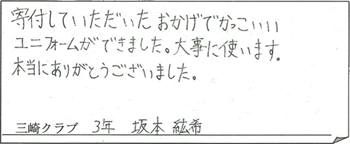 寄付していただいた おかげでかっこいい
ユニフォームができました。大事に使います。
本当にありがとうございました。
三崎クラブ 3年 坂本 紘希